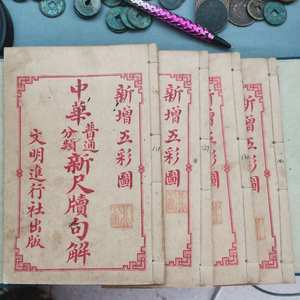 新增五彩圖
中華普通分類新尺牘句解
文明進行社出版
新增五彩圖
新增五彩圖
新增五彩圖
新增五彩圖